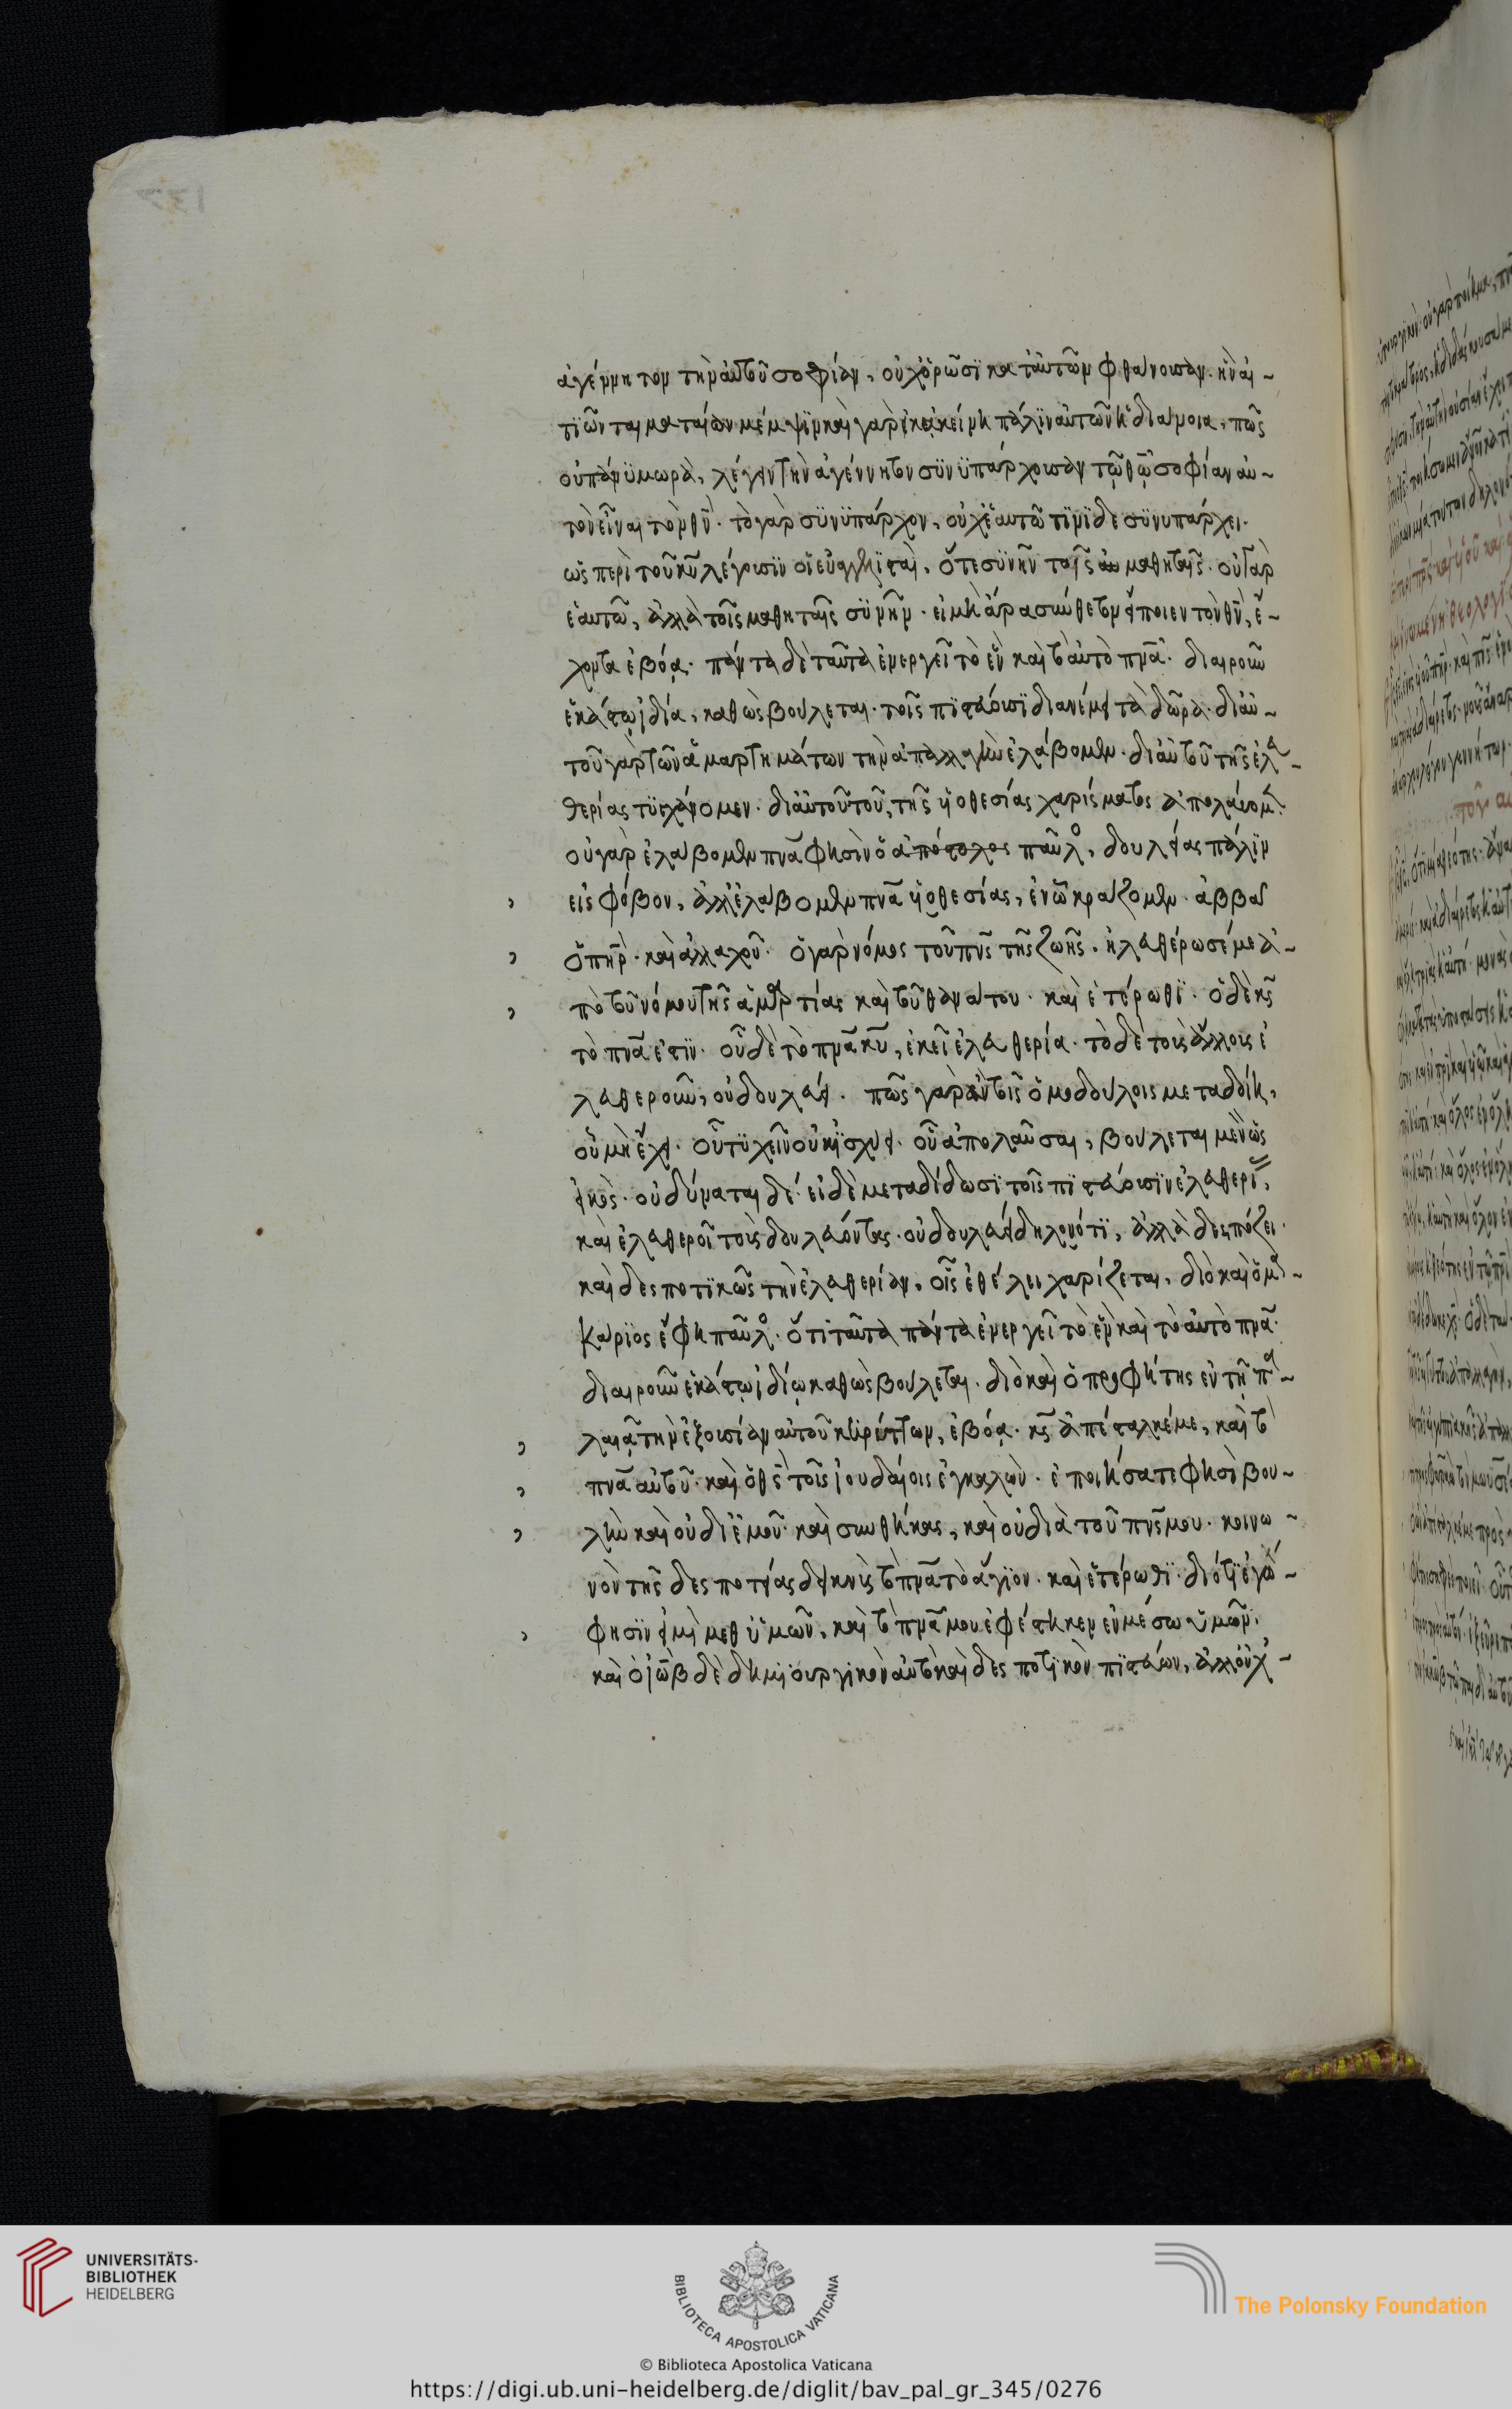 ἀγέννητον τὴν αὐτοῦ σοφίαν, οὐχ ὁρῶσι κατ' αὐτῶν φθάνουσαν. ἣν αἰ-
τιῶνται ματαίαν μέμψιν καὶ γὰρ κἀκείνη πάλιν αὐτῶν ἡ διάνοια, πῶς
οὐ πάνυ μωρὰ, λέγειν τὴν ἀγέννητον συνυπάρχουσαν τῷ θῷ σοφίαν αὐ-
τὸν εἶναι τὸν θν̄. τὸ γὰρ συνυπάρχον, οὐχ ἑαυτῷ τινὶ δὲ συνυπάρχει.
ὡς περὶ τοῦ κῡ λέγουσιν οἱ εὐαγγελισταὶ, ὅτε συνῆν τοῖς μαθηταῖς. οὐ γὰρ
ἑαυτῷ, ἀλλὰ τοῖς μαθηταῖς συνῆν. εἰ μὴ ἄρα σύνθετον εἴποιεν τὸν θν̄, ἔ-
χοντα ἐβόα. πάντα δὲ ταῦτα ἐνεργεῖ τὸ ἓν καὶ τὸ αὐτὸ πνᾶ. διαιροῦν
ἑκάστῳ ἰδίᾳ, καθὼς βούλεται. τοῖς πιστεύουσι διανέμει τὰ δῶρα. δι' αὐ-
τοῦ γὰρ τῶν ἁμαρτημάτων τὴν ἀπαλλαγὴν ἐλάβομεν. δι' αὐτοῦ τῆς ἐλευ-
θερίας τυγχάνομεν. δι' αὐτοῦ τοῦ, τῆς υἱοθεσίας χαρίσματος ἀπολαύομεν.
οὐ γὰρ ἐλάβομεν πνᾶ φησὶν ὁ ἀπόστολος παῦλος, δουλείας πάλιν
εἰς φόβον, ἀλλ' ἐλάβομεν πνᾶ υἱοθεσίας, ἐν ᾧ κράζομεν. ἀββᾶ
ὁ πηρ. καὶ ἀλλαχοῦ. ὁ γὰρ νόμος τοῦ πνς τῆς ζωῆς. ἠλευθέρωσέ με ἀ-
πὸ τοῦ νόμου τῆς ἁμαρτίας καὶ τοῦ θανάτου. καὶ ἑτέρωθι. ὁ δὲ κς
τὸ πνᾶ ἐστιν. οὗ δὲ τὸ πνᾶ κυ, ἐκεῖ ἐλευθερία. τὸ δὲ τοὺς ἄλλους ἐ-
λευθεροῦν, οὐ δουλεύει. πῶς γὰρ αὐτοῖς ὁμοδούλοις μεταδοίη,
οὗ μὴ ἔχει. οὗ τυχεῖν οὐκ ἴσχυε. οὗ ἀπολαῦσαι, βούλεται μὲν ὡς
εἰκὸς. οὐ δύναται δέ. εἰ δὲ μεταδίδωσι τοῖς πιστεύουσιν ἐλευθερίας,
καὶ ἐλευθεροῖ τοὺς δουλεύοντας. οὐ δουλεύει δηλονότι, ἀλλὰ δεσπόζει.
καὶ δεσποτικῶς τὴν ἐλευθερίαν, οἷς ἐθέλει χαρίζεται, διὸ καὶ ὁ μα-
κάριος ἔφη παῦλος. ὅτι ταῦτα πάντα ἐνεργεῖ τὸ ἓν καὶ τὸ αὐτὸ πνᾶ.
διαιροῦν ἑκάστῳ ἰδίῳ καθὼς βούλεται. διὸ καὶ ὁ προφήτης ἐν τῇ πα-
λαιᾷ τὴν ἐξουσίαν αὐτοῦ κηρύττων, ἐβόα. κς ἀπέσταλκέ με, καὶ τὸ
πνᾶ αὐτοῦ. καὶ ὁ θς τοῖς ἰουδαίοις ἐγκαλῶν. ἐποιήσατε φησὶ βου-
λὴν καὶ οὐ δι' ἐμοῦ. καὶ συνθήκας, καὶ οὐ διὰ τοῦ πνς μου. κοινω-
νὸν τῆς δεσποτείας δεικνὺς τὸ πνᾶ τὸ ἅγιον. καὶ ἑτέρωθι. διότι ἐγὼ
φησὶν εἰμὶ μεθ' ὑμῶν, καὶ τὸ πνᾶ μου ἐφέστηκεν ἐν μέσῳ ὑμῶν.
καὶ ὁ ἰὼβ δὲ δημιουργικὸν αὐτὸ καὶ δεσποτικὸν πιστεύων, ἀλλ' οὐχ
UNIVERSITÄTS-
BIBLIOTHEK
HEIDELBERG
BIBLIOTECA APOSTOLICA VATICANA
The Polonsky Foundation
© Biblioteca Apostolica Vaticana
https://digi.ub.uni-heidelberg.de/diglit/bav_pal_gr_345/0276